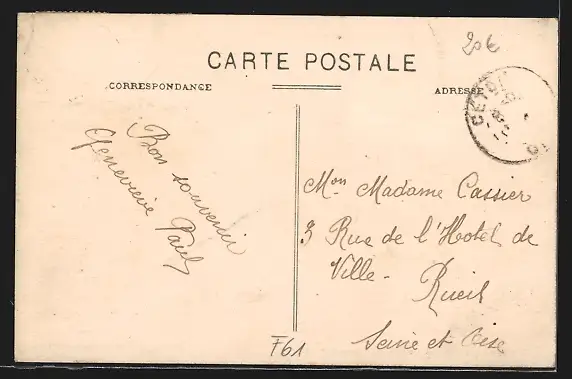 20€
CARTE POSTALE
CORRESPONDANCE
ADRESSE
Bon souvenir
Geneviève Paul
Mon Madame Cassier
3 Rue de l'Hotel de
Ville-
Rueil
Seine et Oise
F61